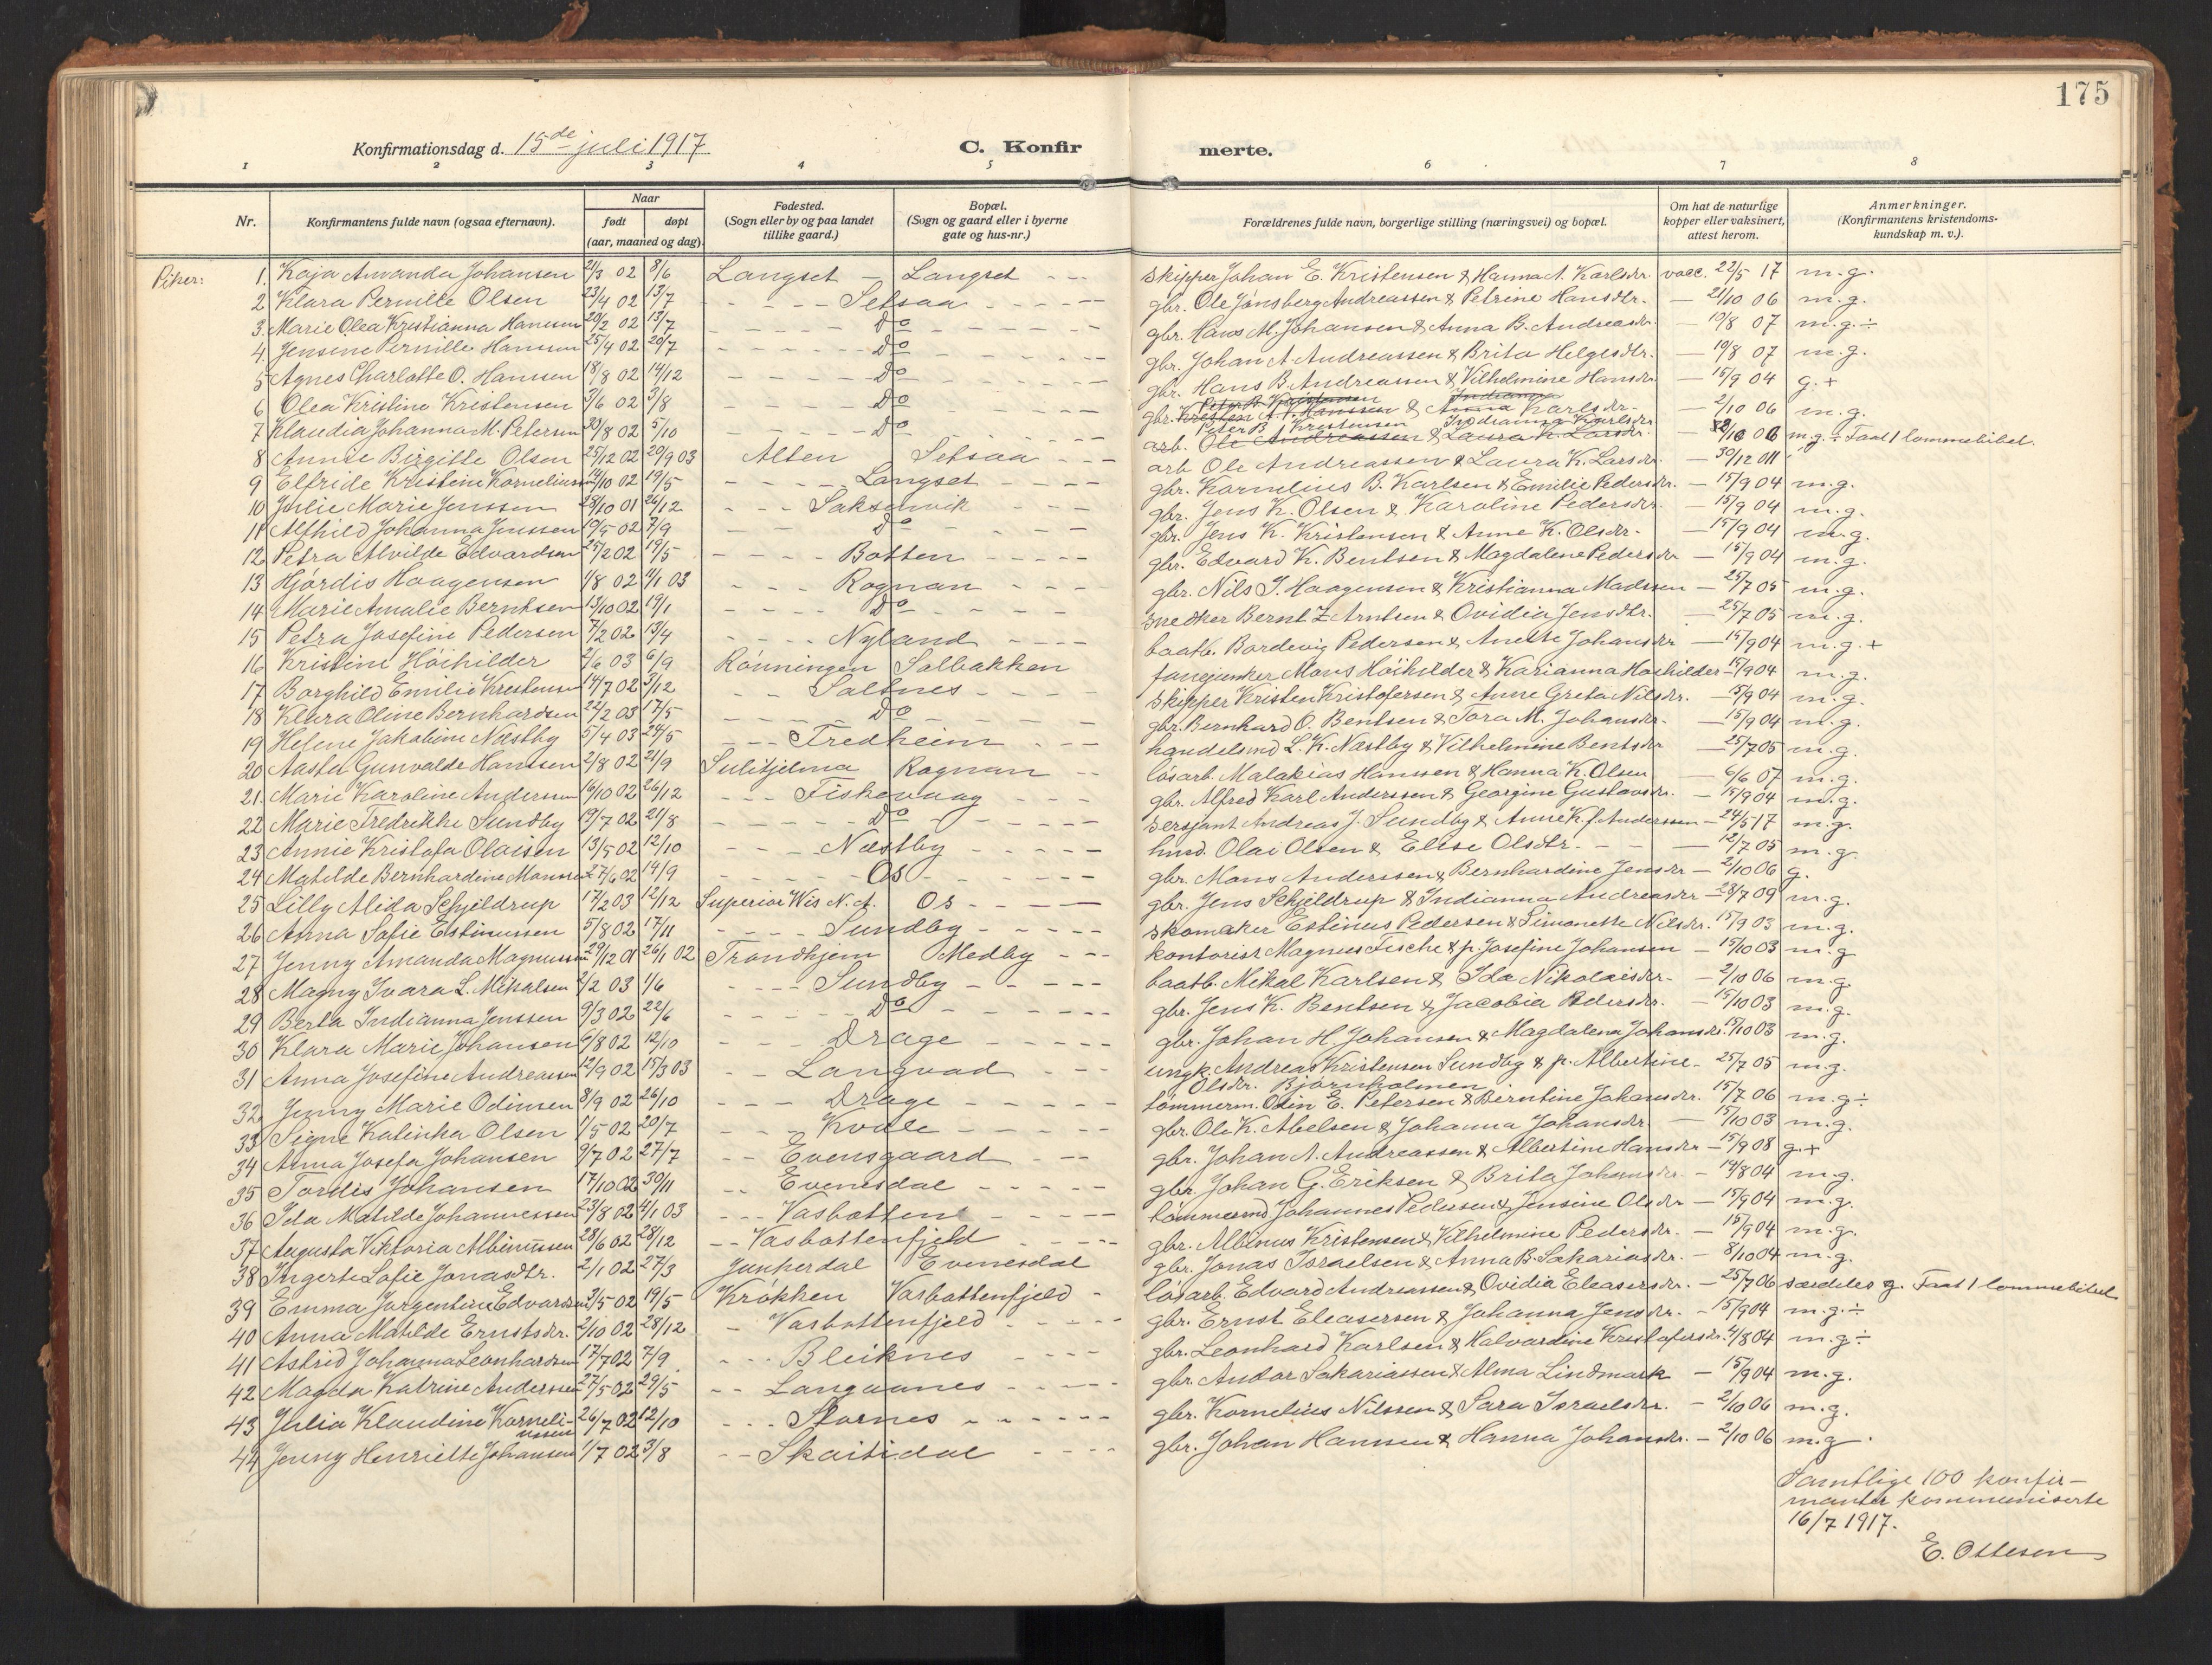 175
Konfirmationsdag d. 15de juli 1917 C. Konfirmerte.
1 2 3 4 5 6 7 8
Nr. Konfirmantens fulde navn (ogsaa efternavn). Naar født døpt (aar, maaned og dag). Fødested. (Sogn eller by og paa landet tillike gaard.) Bopæl. (Sogn og gaard eller i byerne gate og hus-nr.) Forældrenes fulde navn, borgerlige stilling (næringsvei) og bopæl. Om hat de naturlige kopper eller vaksinert, attest herom. Anmerkninger. (Konfirmantens kristendomskundskap m. v.).
Piker: 1. Kaja Amanda Johansen 21/3 02 8/6 Langset – Langset skipper Johan E. Kristensen & Hanna A. Karlsdr. vacc. 22/5 17 m.g.
2. Klara Pernille Olsen 23/4 02 13/7 Setsaa gbr. Ole Jónsberg Andreassen & Petrine Hansdtr. – 21/10 06 m.g.
3. Marie Olea Kristianna Hanssen 20/2 02 13/7 Do gbr. Hans M. Johansen & Anna B. Andreasdr. – 19/8 07 m.g.÷
4. Jensine Pernille Hanssen 25/4 02 20/7 Do gbr. Johan A. Andreassen & Brita Helgesdtr. – 19/8 07 m.g.
5 Agnes Charlotte O. Hanssen 18/8 02 14/12 Do gbr. Hans B. Andreassen & Vilhelmine Hansdr. – 15/9 04 g.+
6 Olea Kristine Kristensen 3/6 02 3/8 Do gbr. Kristen A. Hanssen & Anna Karlsdr. – 2/10 06 m.g.
7 Klaudia Johanna M. Petersen 30/8 02 5/10 Do Peter B. Kristensen Indianna Karlsdr. arb. Ole Andreassen & Laura K. Larsdr. m.g.÷ Faat 1 lommebibel.
8 Annie Birgitte Olsen 25/12 02 20/9 03 Alten Setsaa arb Ole Andreassen & Laura K. Larsdr. – 30/12 011
9 Elfride Kristine Korneliussen 14/10 02 19/5 Langset gbr. Kornelius B. Karlsen & Emilie Pedersdr. – 15/9 04 m.g.
10 Julie Marie Jenssen 28/10 01 26/12 Saksenvik gbr. Jens K. Olsen & Karoline Pedersdr. – 15/9 04 m.g.
11 Alfhild Johanna Jenssen 19/5 02 7/9 Do gbr. Jens K. Kristensen & Anne K. Olsdr. – 15/9 04 m.g.
12 Petra Alvilde Edvardsen 25/2 02 19/5 Botten gbr. Edvard K. Bentsen & Magdalene Pedersdr – 15/9 04 m.g.
13 Hjórdis Haagensen 1/8 02 4/1 03 Rognan gbr. Nils J. Haagensen & Kristianna Madssen – 25/7 05 m.g.
14 Marie Amalie Berntsen 13/10 02 19/1 Do snedker Bernt Z Arntsen & Ovidia Jensdtr. – 25/7 05 m.g.
15 Petra Josefine Pedersen 7/2 02 13/4 Nyland baatb. Bordevig Pedersen & Anette Johansdr – 15/9 04 m.g.+
16 Kristine Hóihilder 2/6 03 6/9 Rónningen Solbakken fanejunker Mons Hóihilder & Karianna Hóihilder – 15/9 04 m.g.
17 Borghild Emilie Kristensen 14/7 02 3/12 Saltnes skipper Kristen Kristofersen & Anne Greta Nilsdr. – 15/9 04 m.g.
18 Klara Oline Bernhardsen 22/2 03 17/5 Do gbr. Bernhard O. Bentsen & Tora M. Johansdr. – 15/9 04 m.g.
19 Helene Jakobine Næstby 5/4 03 24/5 Fredheim handelsmd L. K. Næstby & Vilhelmine Bentsdr – 25/7 05 m.g.
20 Aasta Gunvalde Hanssen 2/8 02 21/9 Sulitjelma Rognan lósarb. Malakias Hanssen & Hanna K. Olsen – 6/6 07 m.g.
21. Marie Karoline Anderssen 16/10 02 26/12 Fiskevaag gbr. Alfred Karl Anderssen & Georgine Gustavsdr. – 15/9 04 m.g.
22 Marie Fredrikke Sundby 19/7 02 21/8 Do sersjant Andreas J. Sundby & Anne K. J. Anderssen – 24/5 17 m.g.
23 Annie Kristofa Olaisen 13/5 02 12/10 Næstby hmd. Olai Olsen & Elise Olsdtr. – 12/7 05 m.g.
24 Matilde Bernhardine Monssen 27/6 02 14/9 Os gbr. Mons Anderssen & Bernhardine Jensdr – 2/10 06 g.
25 Lilly Alida Schjeldrup 17/2 03 12/12 Superior Wis N.A. Os gbr. Jens Schjeldrup & Indianna Andreasdr – 28/7 09 m.g.
26 Anna Sofie Estinussen 5/8 02 17/11 Sundby skomaker Estinus Pedersen & Simonette Nilsdr. 15/9 03 m.g.
27 Jenny Amanda Magnussen 29/12 01 26/1 02 Trondhjem Medby kontorist Magnus Fische & p. Josefine Johansen – 15/10 03 m.g
28 Magny Ivara L. Mikalsen 2/2 03 1/6 Sundby baatb. Mikal Karlsen & Ida Nikolaisdr. – 2/10 06 m.g.
29 Berta Indianna Jenssen 9/3 02 22/6 Do gbr. Jens K. Bentsen & Jacobia Pedersdr. – 15/10 03 m.g.
30 Klara Marie Johansen 6/8 02 12/10 Drage gbr. Johan H. Johansen & Magdalena Johansdr. 15/10 03 m.g.
31 Anna Josefine Andreassen 12/9 02 15/3 03 Langvad ungk. Andreas Kristensen Sundby & p. Albertine – 25/7 05 m.g.
Olsdr. Bjórnholmen
32 Jenny Marie Odinsen 8/9 02 26/10 Drage tómmerm. Odin E. Petersen & Berntine Johansdr. 15/7 06 m.g÷
33 Signe Katinka Olsen 1/5 02 20/7 Kvæle gbr. Ole K. Abelsen & Johanna Johansdr. – 15/10 03 m.g.
34 Anna Josefa Johansen 9/7 02 27/7 Evensgaard gbr. Johan A. Andreassen & Albertine Hansdr – 15/9 08 g.+
35 Tordis Johansen 17/10 02 30/11 Evenesdal gbr. Johan G. Eriksen & Brita Johansdr. – 19/8 04 m.g.
36 Ida Matilde Johannessen 23/8 02 4/1 03 Vasbotten tómmermd Johannes Pedersen & Jensine Olsdr – 15/9 04 m.g.
37 Augusta Viktoria Albinussen 28/6 02 28/12 Vasbottenfjeld gbr. Albinus Kristensen & Vilhelmine Pedersdr. – 15/9 04 m.g.
38 Ingerte Sofie Jonasdtr. 2/1 02 27/3 Junkerdal Evenesdal gbr. Jonas Israelsen & Anna B. Sakariasdr. – 8/10 04 m.g.
39 Emma Jorgentine Edvardsen 3/5 02 19/5 Krókken Vasbottenfjeld lósarb. Edvard Andreassen & Ovidia Eleasersdr. – 25/7 06 særdeles g. Faat 1 lommebibel
40 Anna Matilde Ernstsdr. 2/10 02 28/12 Vasbottenfjeld gbr. Ernst Eleasersen & Johanna Jensdr. – 15/9 04 m.g.÷
41 Astrid Johanna Leonhardsen 17/7 02 7/9 Bleiknes gbr. Leonhard Karlsen & Halvardine Kristofersdr. 4/8 04 m.g÷
42 Magda Katrine Anderssen 27/5 02 29/5 Langaanes gbr. Andor Sakariassen & Alma Lindmark – 15/9 04 m.g.
43 Julia Klaudine Korneliussen 26/7 02 12/10 Stornes gbr. Kornelius Nilssen & Sara Israelsdr. – 2/10 06 m.g.
44 Jenny Henriette Johansen 1/7 02 3/8 Skaitidal gbr. Johan Hanssen & Hanna Johansdr. – 2/10 06 m.g.
Samtlige 100 konfir-
manter kommuniserte
16/7 1917.
E. Ottesen